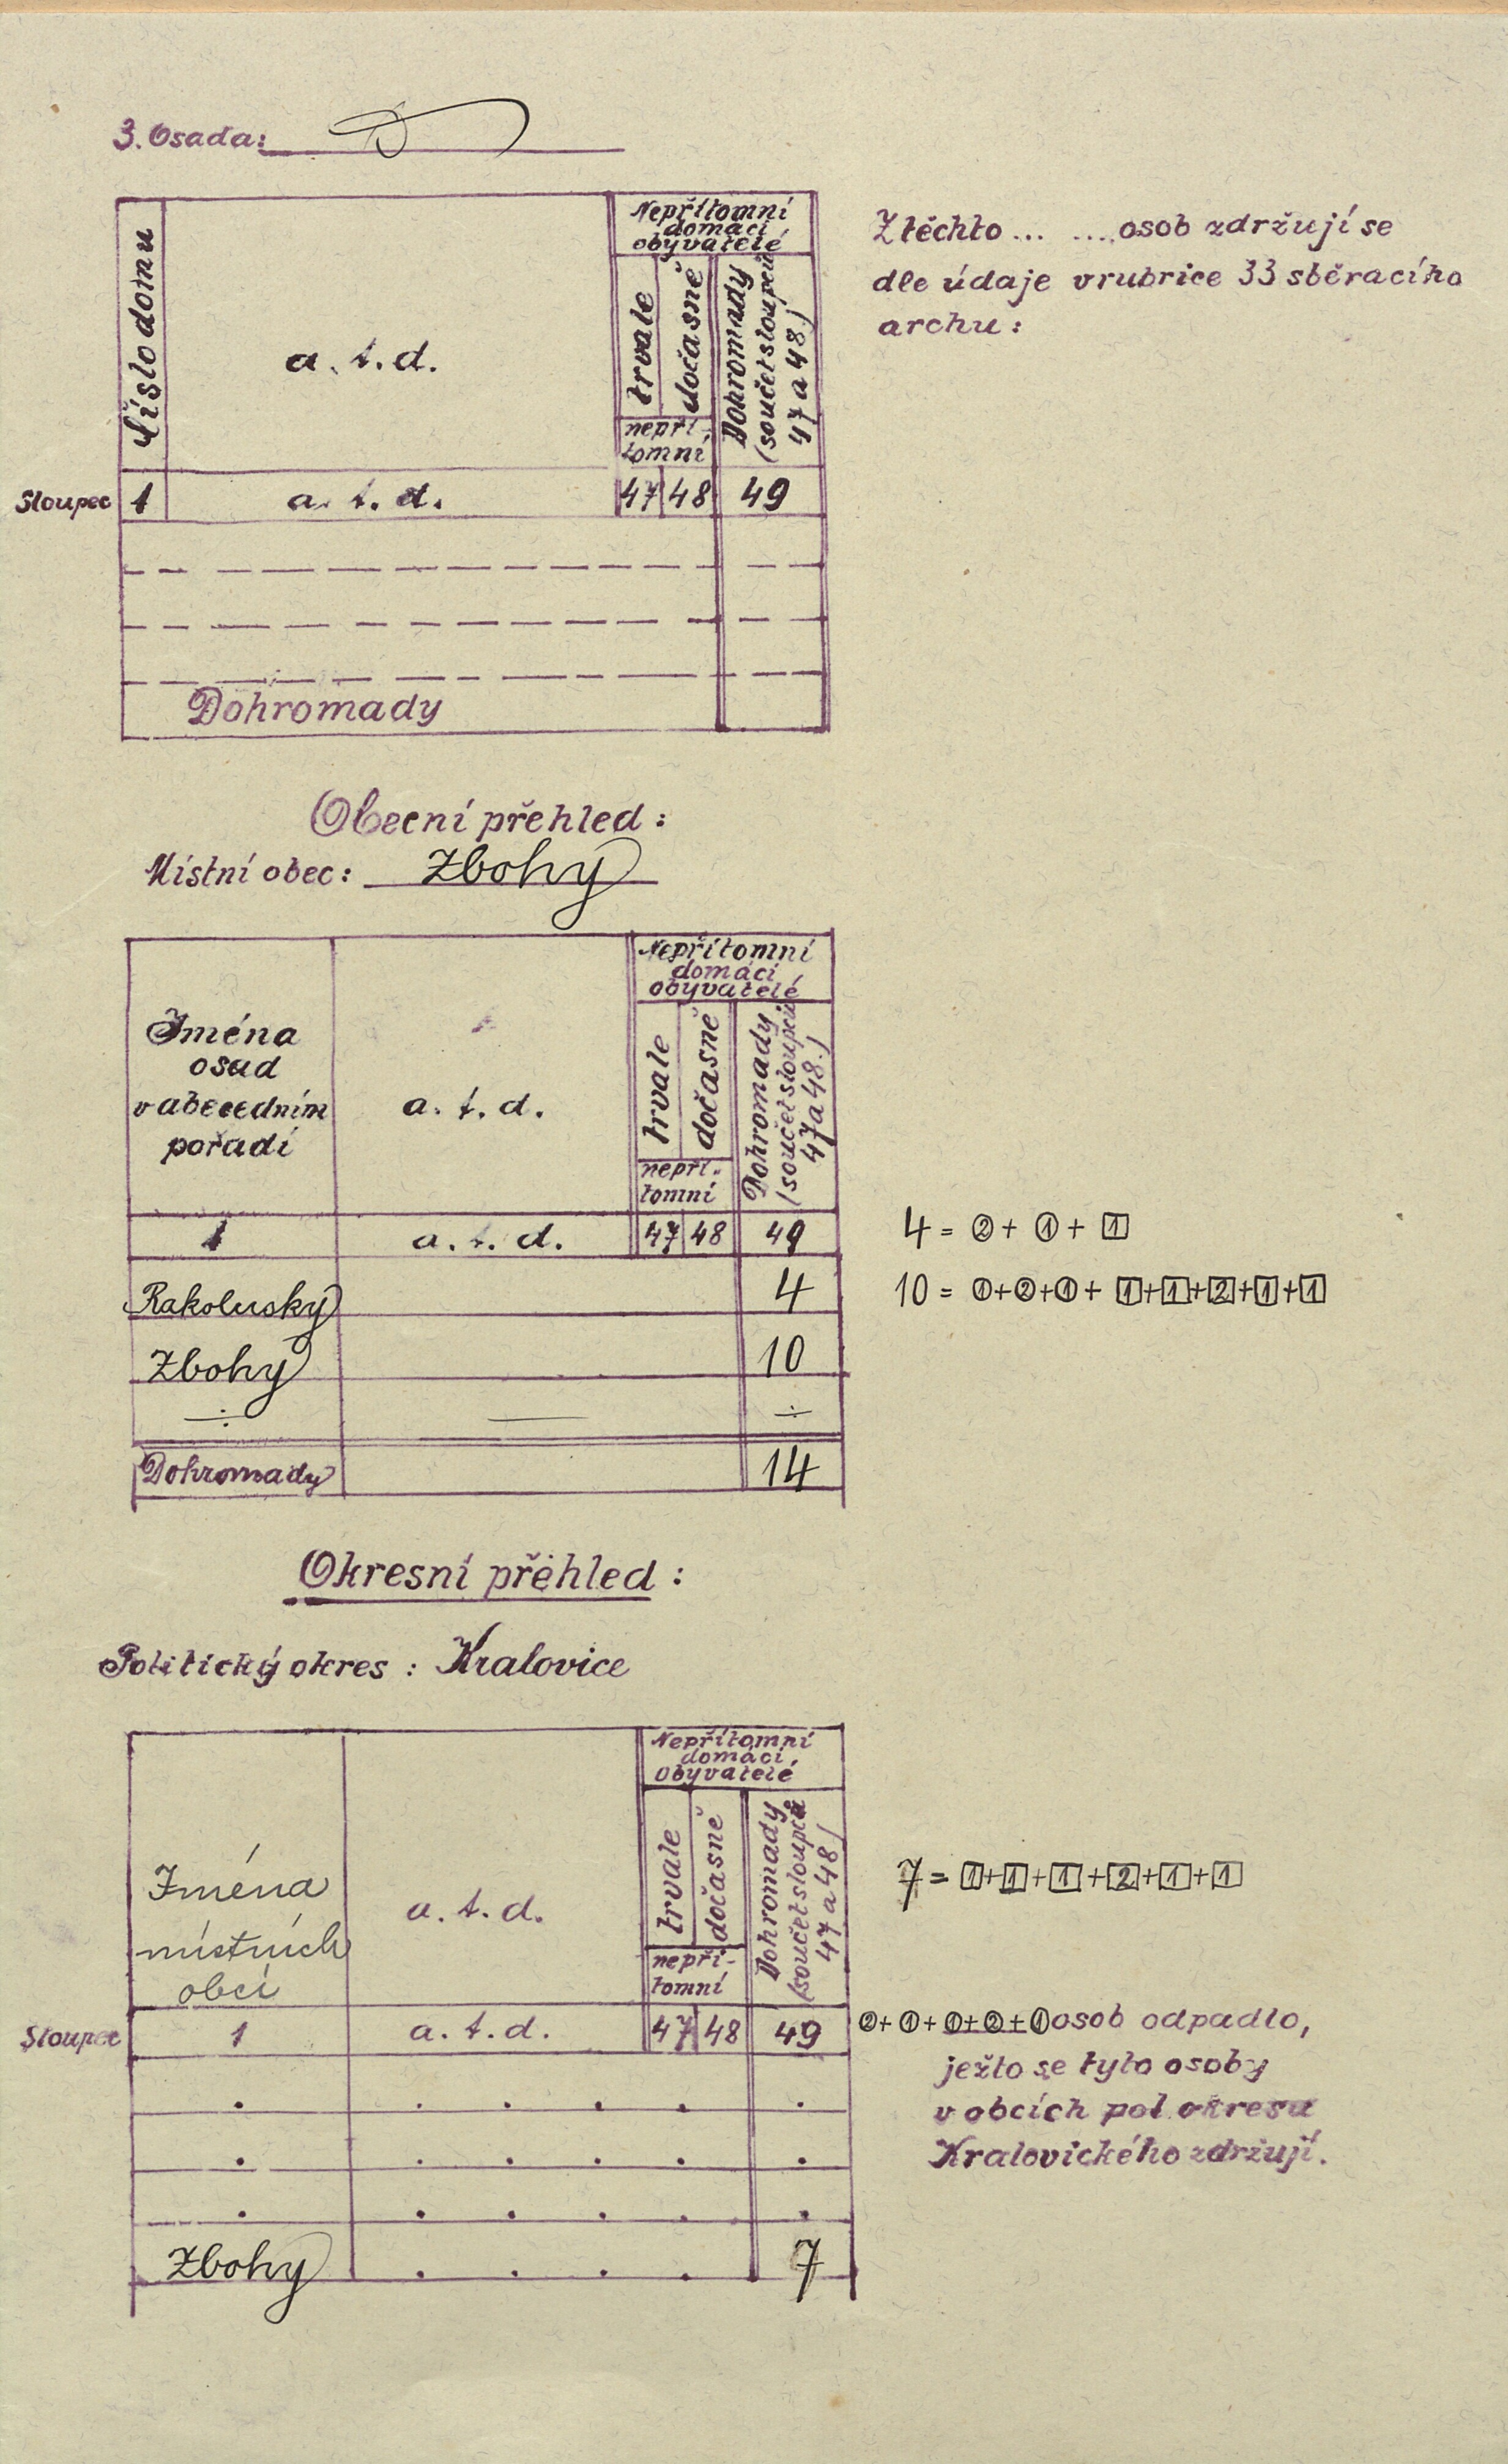 3. Osada:
Číslo domu
a. t. d.
Nepřítomní
domácí
obyvatelé
trvale
dočasně
nepří-
tomní
Dohromady
(součet sloupců
47 a 48.)
Sloupec 1 a. t. d. 47 48 49
Dohromady
Z těchto ... .... osob zdržují se
dle údaje v rubrice 33 sběracího
archu:
Obecní přehled:
Místní obec: Zbohy
Jména
osad
v abecedním
pořadí
a. t. d.
Nepřítomní
domácí
obyvatelé
trvale
dočasně
nepří-
tomní
Dohromady
(součet sloupců
47 a 48.)
1 a. t. d. 47 48 49
Rakolusky 4
Zbohy 10
÷ — ÷
Dohromady 14
4 = ② + ① + 1
10 = ① + ② + ① + 1 + 1 + 2 + 1 + 1
Okresní přehled:
Politický okres: Kralovice
Jména
místních
obcí
a. t. d.
Nepřítomní
domácí
obyvatelé
trvale
dočasně
nepří-
tomní
Dohromady
(součet sloupců
47 a 48)
Sloupec 1 a. t. d. 47 48 49
. . . . . .
. . . . . .
. . . . . .
Zbohy . . . . 7
7 = 1 + 1 + 1 + 2 + 1 + 1
② + ① + ① + ② + ① osob odpadlo,
ježto se tyto osoby
v obcích pol. okresu
Kralovického zdržují.